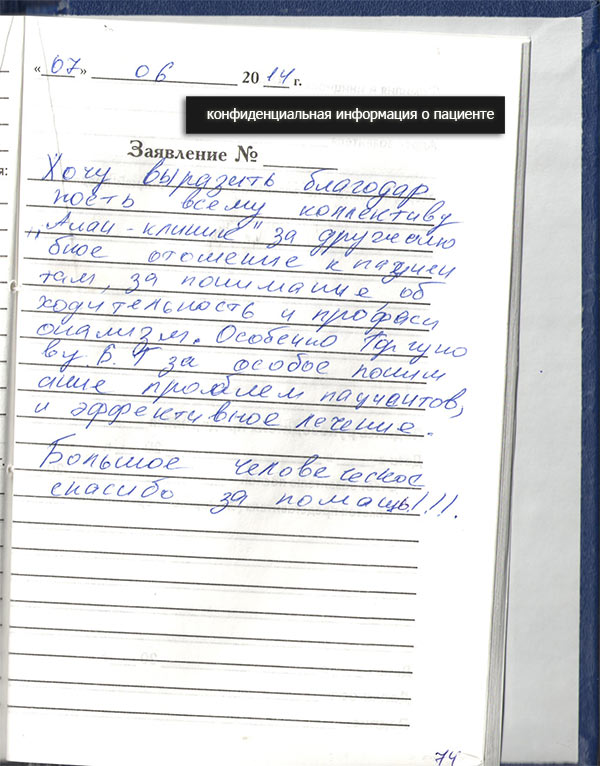 «07» 06 2014 г.
конфиденциальная информация о пациенте
Заявление №
Хочу выразить благодар
ность всему коллективу
„Алан-клиник" за дружелю
бное отошение к пациен
там, за понимание, об
ходительность и профаси
онализм. Особенно Горгуно
ву Б. Г за особое поним
ание проблем пациентов,
и эффективное лечение.
Большое человеческое
спасибо за помощь!!!.
74